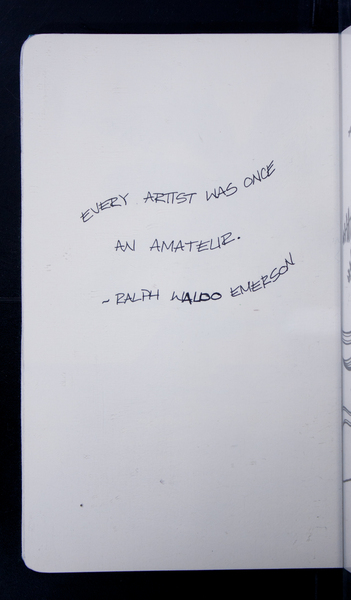 EVERY ARTIST WAS ONCE
AN AMATEUR.
~ RALPH WALDO EMERSON